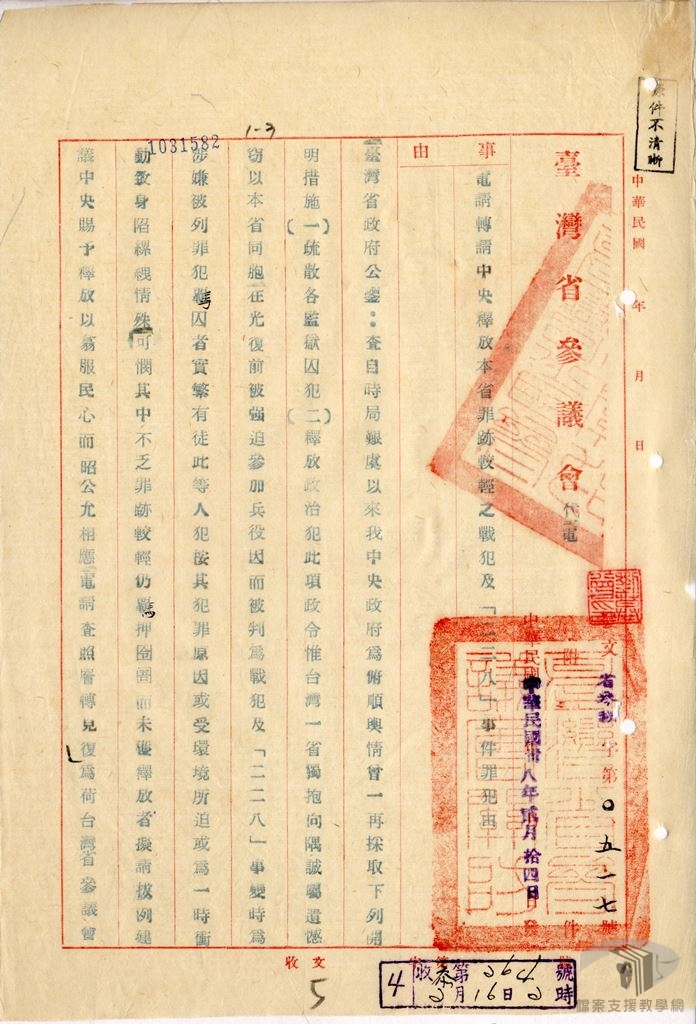 原件不清晰
中華民國 年 月 日
臺灣省參議會代電
文
省參議字第〇五一七號
附件
中華民國卅八年貳月拾四日發
事由
電請轉請中央釋放本省罪跡較輕之戰犯及「二二八」事件罪犯由
臺灣省政府公鑒：查自時局艱虞以來我中央政府為俯順輿情曾一再採取下列開
明措施(一)疏散各監獄囚犯(二)釋放政治犯此項政令惟台灣一省獨抱向隅誠屬遺憾
窃以本省同胞在光復前被强迫參加兵役因而被判為戰犯及「二二八」事變時為
涉嫌被列罪犯羈囚者實繁有徒此等人犯按其犯罪原因或受環境所迫或為一時衝
動致身陷縲絏情殊可憫其中不乏罪跡較輕仍羈押囹圄而未獲釋放者擬請援例建
議中央賜予釋放以翕服民心而昭公允相應電請查照層轉見復為荷台灣省參議會
1031582
1-3
收文
5
4
收 第 364 號
月16日 時
檔案支援教學網